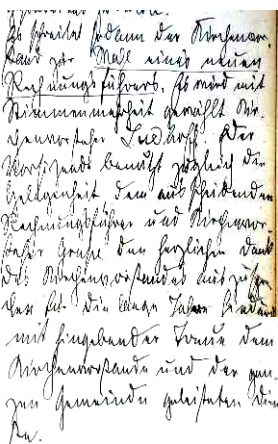 Es schreitet sodann der Kirchenvor-
stand zur Wahl eines neuen
Rechnungsführers. Es wird mit
Stimmenmehrheit gewählt Kir-
chenvorsteher Der
Vorsitzende benutzt zugleich die
Gelegenheit dem ausscheidenden
Rechnungsführer und Kirchenvor-
steher den herzlichen Dank
des Kirchenvorstandes auszuspre-
chen für die lange Jahre hindurch
mit hingebender Treue dem
Kirchenvorstande und der gan-
zen Gemeinde geleisteten Dien-
ste.